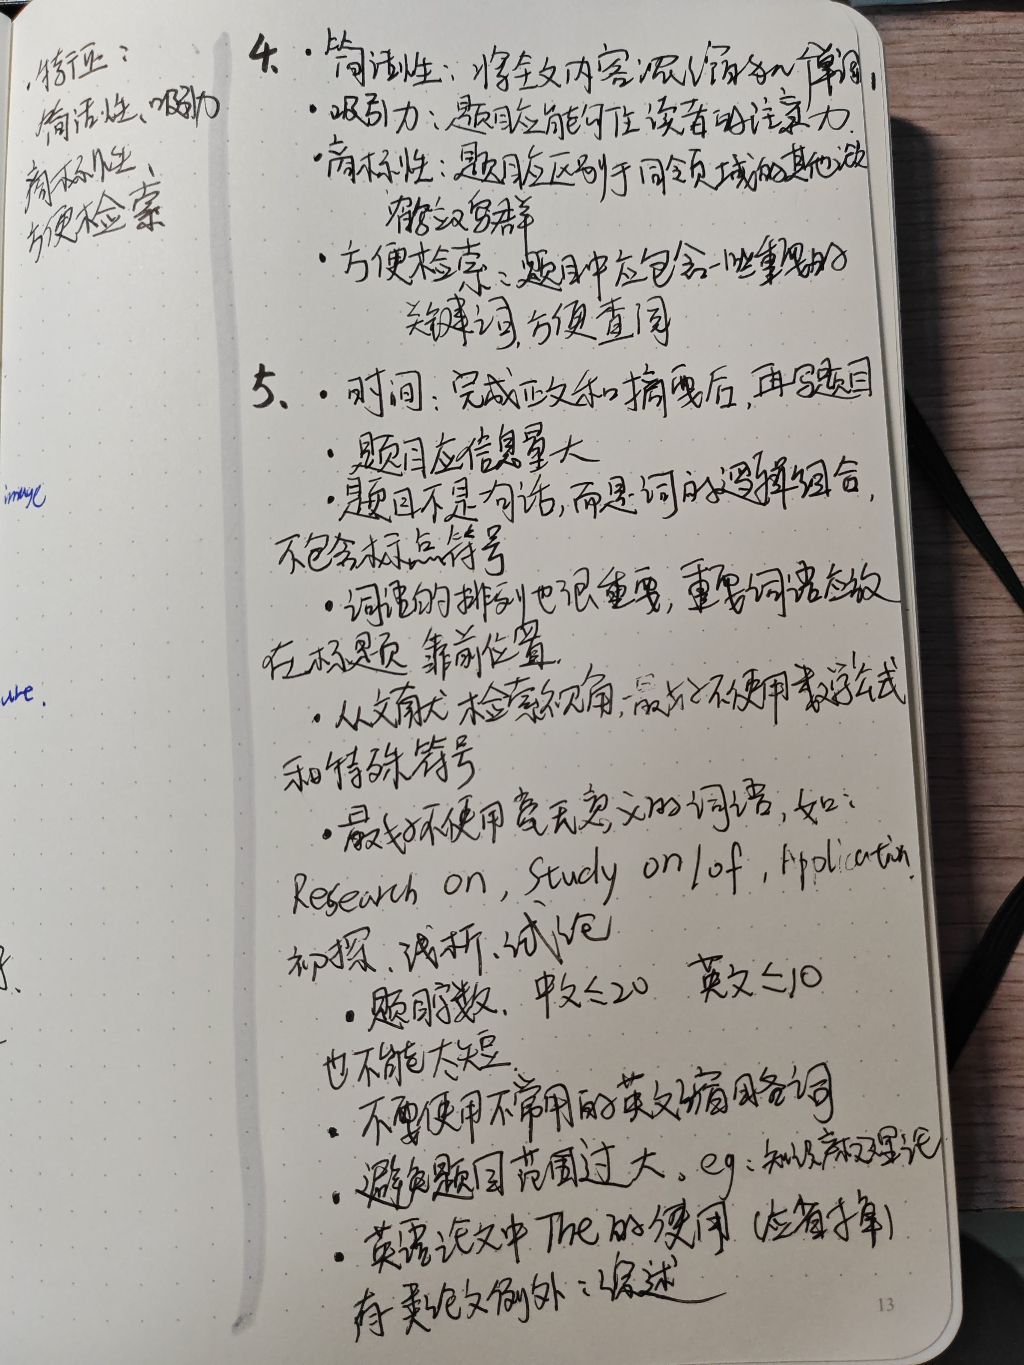 ·特征:
简洁性、吸引力
商标性、
方便检索
image
ure.
4. ·简洁性: 将全文内容浓缩为几个单词,
·吸引力: 题目应能抓住读者的注意力.
·商标性: 题目应区别于同领域的其他
·方便检索: 题目中应包含一些重要的
关键词, 方便查阅
5、·时间: 完成正文和摘要后, 再写题目
·题目应信息量大
·题目不是句话, 而是词的逻辑组合,
不包含标点符号
·词语的排列也很重要, 重要词语应放
在标题 靠前位置.
·从文献 检索视角, 最好不使用数学公式
和特殊符号
·最好不使用毫无意义的词语, 如:
Research on, Study on/of, Application,
初探、浅析、试论
·题目字数, 中文≤20 英文≤10
也不能太短
·不要使用不常用的英文缩略词
·避免题目范围过大。eg: 知识产权理论
·英语论文中The的使用 (应省掉)
有类论文例外: 综述
13